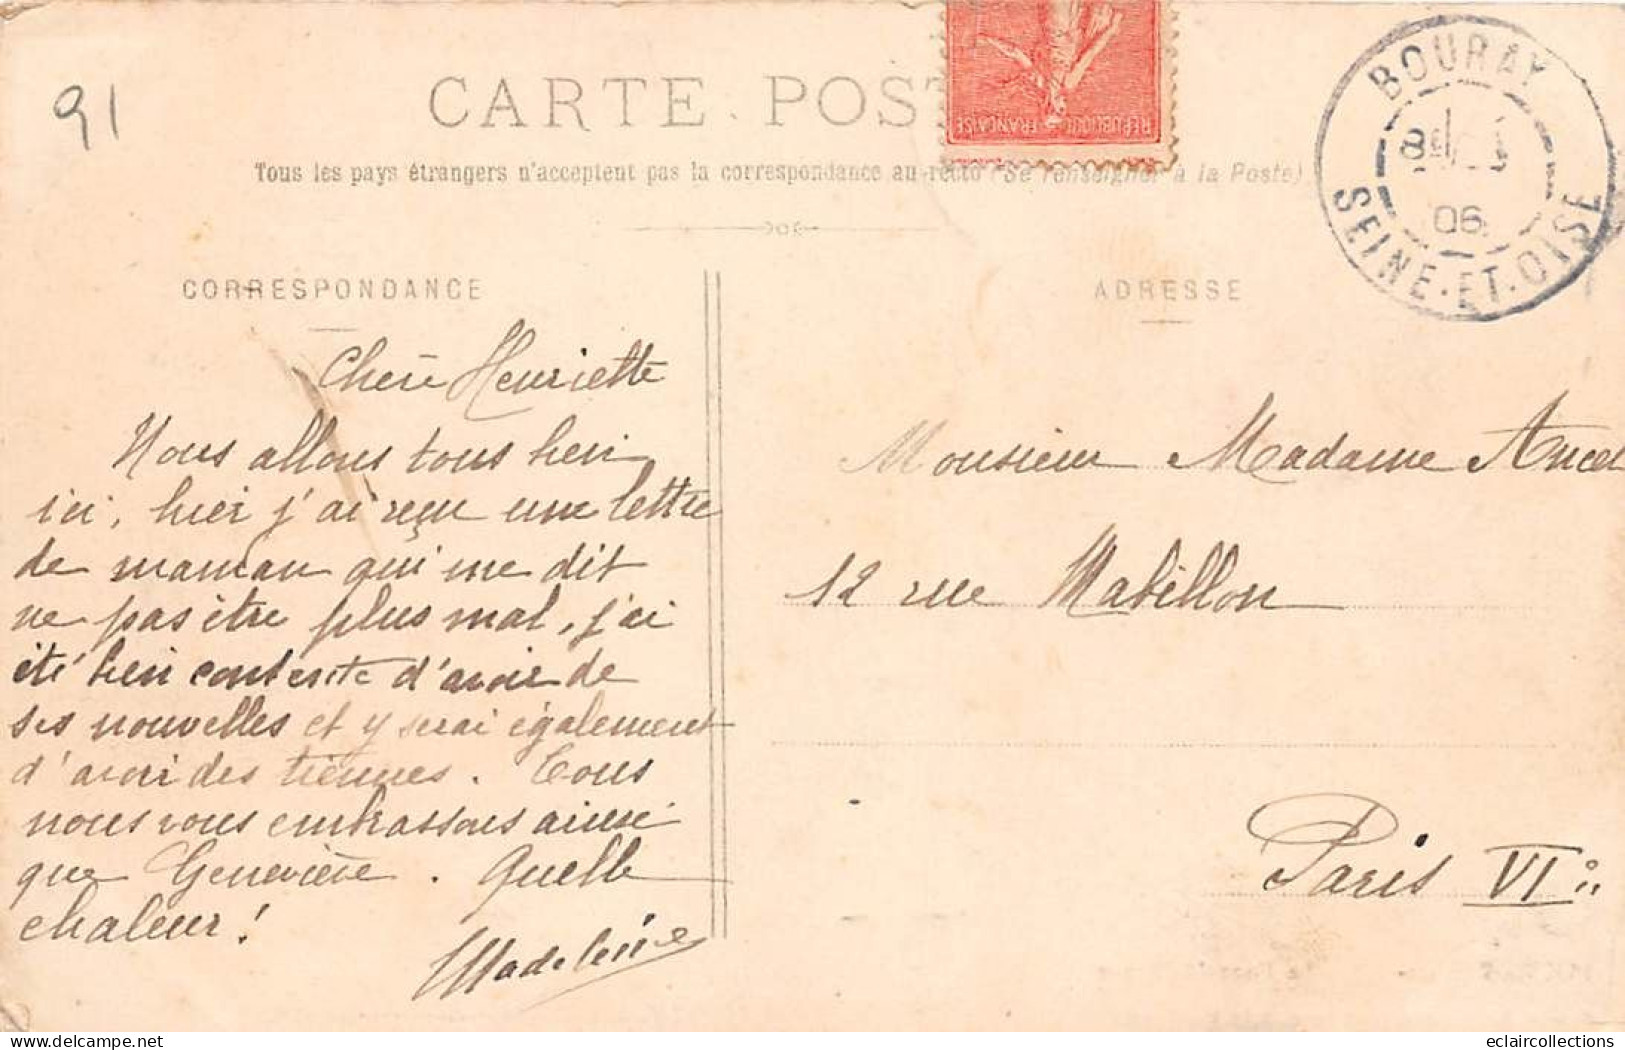 91
CARTE POS
RÉPUBLIQUE FRANÇAISE
BOURAY
06
SEINE-ET-OISE
Tous les pays étrangers n'acceptent pas la correspondance au recto (Se renseigner à la Poste)
CORRESPONDANCE
Chère Henriette
Nous allons tous bien
ici, hier j'ai reçu une lettre
de maman qui me dit
ne pas être plus mal, j'ai
été bien contente d'avoir de
ses nouvelles et y serai également
d'avoir des tiennes. Tous
nous vous embrassons ainsi
que Geneviève. Quelle
chaleur!
Madeleine
ADRESSE
Monsieur Madame Ancel
12 rue Mabillon
Paris VIe
delcampe.net
eclaircollections